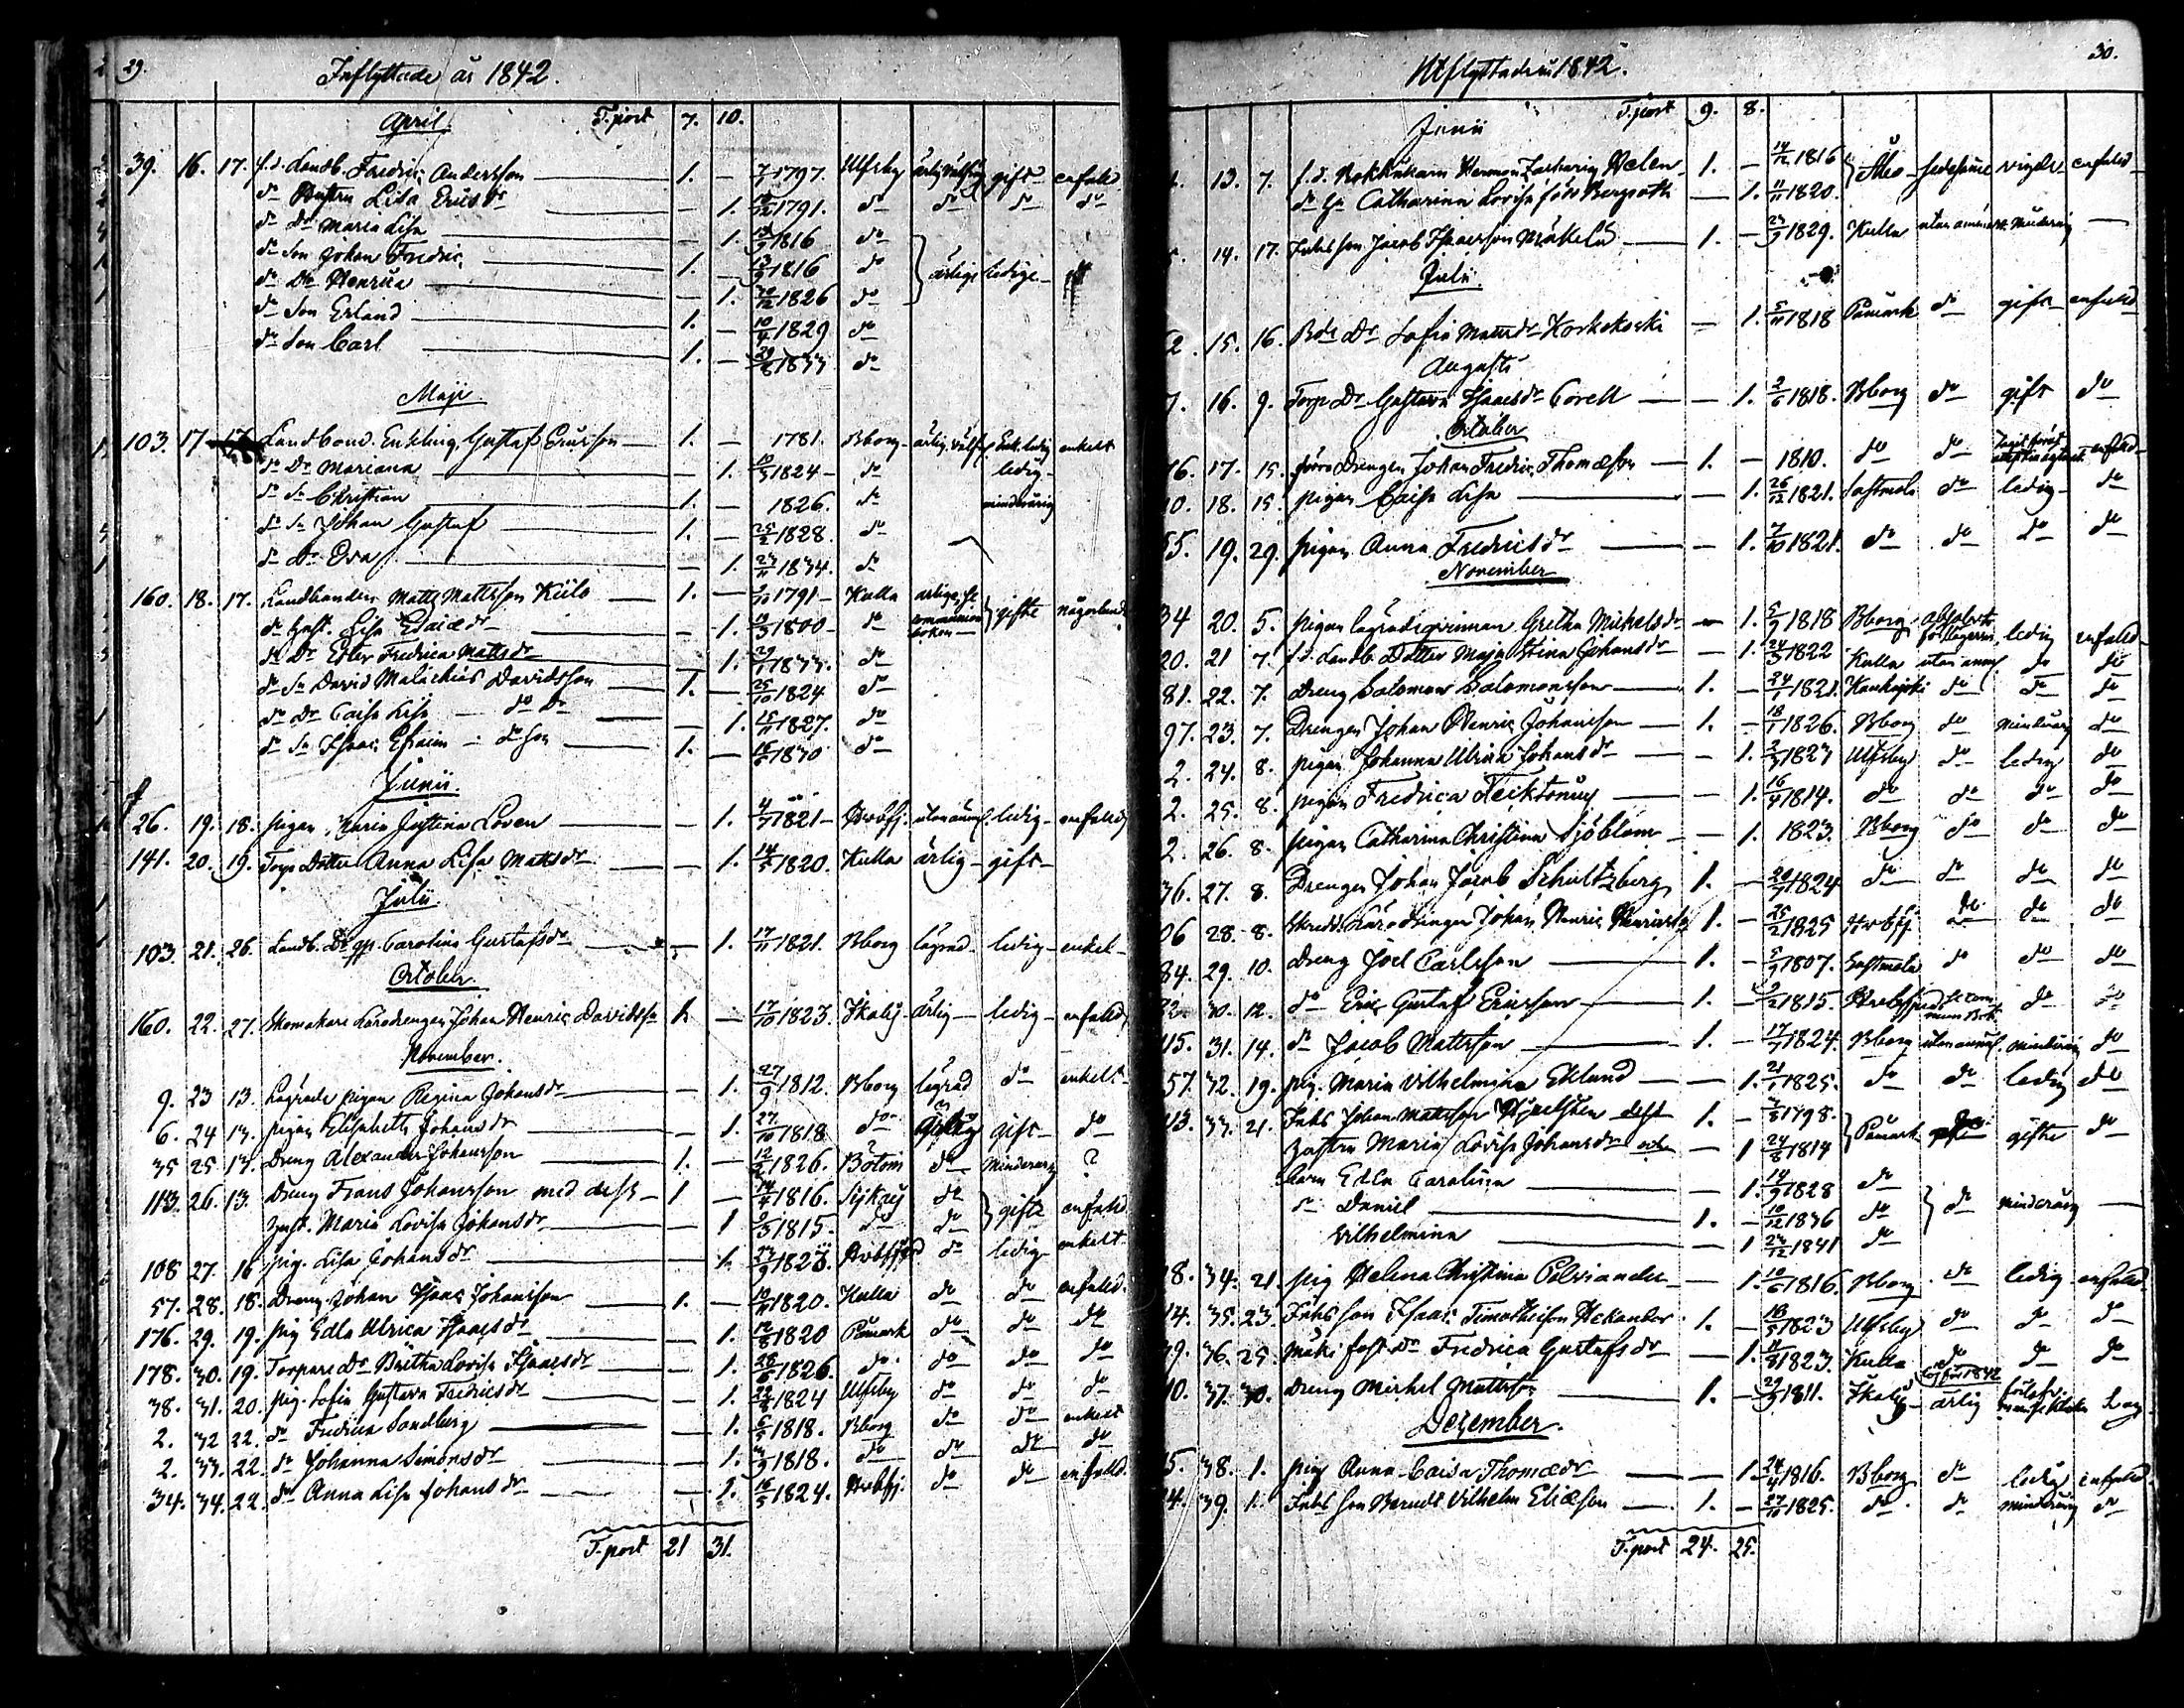 29.
Inflyttade år 1842.
April. T. port 7. 10.
39. 16. 17. f.d. Landb. Fredric Andersson 1. — 1797. Ulfsby ärlig gift enfald
do Hustru Lisa Ericsdr — 1. 1791. do do do do
do Dr Maria Lisa — 1. 1816 do
do Son Johan Fredric 1. — 13/9 1816 do ärlige ledige
do Dr Henrica — 1. 1826 do
do Son Erland 1. — 10/4 1829 do
do Son Carl 1. — 1833 do
Maji
103. 17 17 Landbond. Enkling Gustaf Ericsson 1. — 1781. Bborg ärlig Enkl. ledig enkelt
do Dr Mariana — 1. 10/3 1824 do ledig
do Sn Christian 1. — 1826. do minderårig
do Sn Johan Gustaf 1. — 25/2 1828. do
do Dr Eva — 1. 23/11 1834. do
160. 18. 17. Landbonden Matts Mattsson Kiilo 1. — 1791 Kulla ärlige, se communion boken gifte någorlunda
do Hust. Lisa Esaiædr — 1. 1800 do
do Dr Ester Fredrica Mattsdr — 1. 1833. do
do Sn David Malachias Davidsson 1. — 25/10 1824 do
do Dr Caisa Lisa — do Dr — 1. 15/11 1827. do
do Sn Isaac Efraim — do Son 1. — 1830 do
Junii.
26. 19. 18. pigan Karin Justina Loven — 1. 4/7 1821 Hvbfj. utan anm. ledig enfald
141. 20. 19. Torp Dotter Anna Lisa Mattsdr — 1. 14/5 1820. Kulla ärlig gift
Julii.
103. 21. 26. Landb. Dr pp. Carolina Gustafsdr — 1. 17/11 1821. Bborg lägrad ledig enkel
October.
160. 22. 27. Skomakare Läredrengen Johan Henric Davidsson 1. — 17/10 1823. Ikalis ärlig ledig enfald
November.
9. 23 13. Lägrade pigan Regina Johansdr — 1. 27/9 1812. Bborg lägrad do enkelt
6. 24 13. pigan Elisabeth Johansdr — 1. 27/10 1818 do ärlig gift do
35 25 13. Dreng Alexander Johansson 1. — 12/2 1826. Bötom do Minderårig ?
113. 26. 13. Dreng Frans Johansson med dess 1 — 14/4 1816. do gifte enfald
Hust. Maria Lovisa Johansdr — 1 9/3 1815. do do
108 27. 16 pig. Lisa Johansdr — 1. 27/9 1823. do ledig enkelt
57. 28. 18. Dreng Johan Isaac Johansson 1. — 10/11 1820. Kulla do do enfald.
176. 29. 19. pig Edla Ulrica Isaacsdr — 1. 12/8 1820 Påmark do do do
178. 30. 19. Torpare Dr Britha Lovisa Isaacsdr — 1. 28/6 1826. do do do do
38. 31. 20. pig. Sofia Gustava Fredricsdr — 1. 22/8 1824 Ulfsby do do do
2. 32 22. do Fredrica Sandberg — 1. 6/5 1818. Bborg do do enkelt
2. 33. 22. do Johanna Simonsdr — 1. 3/9 1818. do do do do
34. 34. 22. do Anna Lisa Johansdr — 1. 16/5 1824. Hvbfj. do do enfald.
T. port 21 31.
30.
Utflyttade år 1842.
Junii T. port 9. 8.
13. 7. f.d. Herman Zacharias Helen 1. — 14/12 1816 Åbo enfald
do Catharina Lovisa född Bergroth — 1. 11/11 1820.
14. 17. Inhs son Jacob Isaacsson Mäkelä 1. — 1829. Kulla utan anm. Minderårig —
Julii
2. 15. 16. Bde Dr Sofia Mattsdr Koskikoski — 1. 5/11 1818 Påmark do gift enfald
Augusti
7. 16. 9. Torp Dr Gustava Isaacsdr Corell — 1. 2/6 1818. Bborg do gift do
October
16. 17. 15. förra Drengen Johan Fredric Thomæson 1. — 1810. do do enfald
10. 18. 15. pigan Caisa Lisa — 1. 26/12 1821. Sastmola do ledig do
55. 19. 29. pigan Anna Fredricsdr — 1. 7/10 1821. do do do do
November
34 20. 5. pigan lägradeqvinnan Gretha Michelsdr — 1. 5/9 1818 Bborg ledig enfald
20. 21 7. f.d. Landb. Dotter Maja Stina Johansdr — 1. 24/3 1822 Kulla utan anm. do do
81. 22. 7. Dreng Salomon Salomonsson 1. — 24/1 1821. Kankaipä do do do
97. 23. 7. Drengen Johan Henric Johansson 1. — 18/1 1826. Bborg do Minderårig do
2. 24. 8. pigan Johanna Ulrica Johansdr — 1. 2/3 1823 Ulfsby do ledig do
2. 25. 8. pigan Fredrica Tecktonius — 1. 16/4 1814. do do do do
2. 26. 8. pigan Catharina Christina Sjöblom — 1. 1823. Bborg do do do
36. 27. 8. Drengen Johan Jacob Schultzberg 1. — 20/7 1824 do do do do
06 28. 8. Skredd. Läredrengen Johan Henric Henricsson 1. — 25/2 1825 Hvbfj. do do do
84. 29. 10. Dreng Joel Carlsson 1. — 5/9 1807. Sastmola do do do
22. 30. 12. do Eric Gustaf Ericsson 1. — 1815. do do
15. 31. 14. do Jacob Mattsson 1. — 17/7 1824. Bborg utan anm. minderårig do
57. 32. 19. pig. Maria Vilhelmina Eklund — 1. 21/1 1825. do do ledig do
13. 33. 21. Inhs Johan Mattsson dess 1. — 1798. Påmark gifte do
Hustru Maria Lovisa Johansdr och — 1 24/8 1814
barn Edla Carolina — 1. 14/9 1828 do
do Daniel 1. — 10/12 1836 do do minderårig —
Vilhelmina — 1 23/12 1841 do
8. 34. 21. pig Helena Christina Polviander — 1. 10/6 1816. Bborg do ledig enfald
14. 35. 23. Inhs son Isaac Timotheison Hekanbor 1. — 18/5 1823 Ulfsby do do do
39. 36. 25. Mäki Fredrica Gustafsdr — 1. 11/8 1823. Kulla do do do
10. 37. 30. Dreng Michel Mattsson 1. — 29/9 1811. Ikalis ärlig
Dezember.
5. 38. 1. pig Anna Caisa Thomædr — 1. 24/4 1816. Bborg do ledig enfald.
4. 39. 1. Inhs son Berndt Vilhelm Eliæson 1. — 27/10 1825. do do minderårig do
T. port 24. 25.